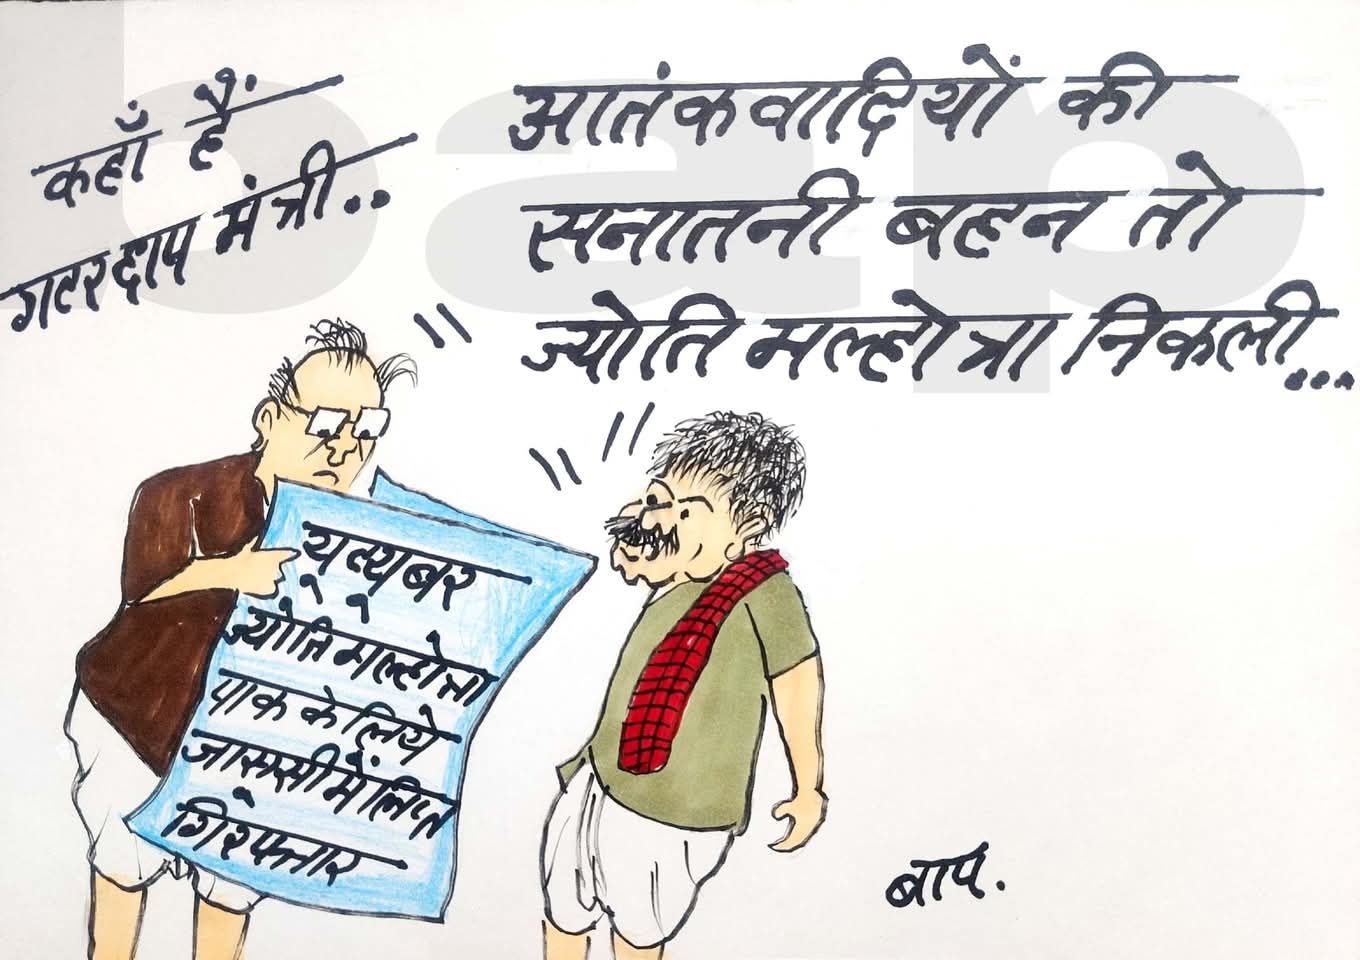 कहाँ हैं
गटरछाप मंत्री..
आतंकवादियों की
सनातनी बहन तो
ज्योति मल्होत्रा निकली...
यूत्यूबर
ज्योति मल्होत्रा
पाक के लिये
जासूसी में लिप्त
गिरफ्तार
बाप.
bap